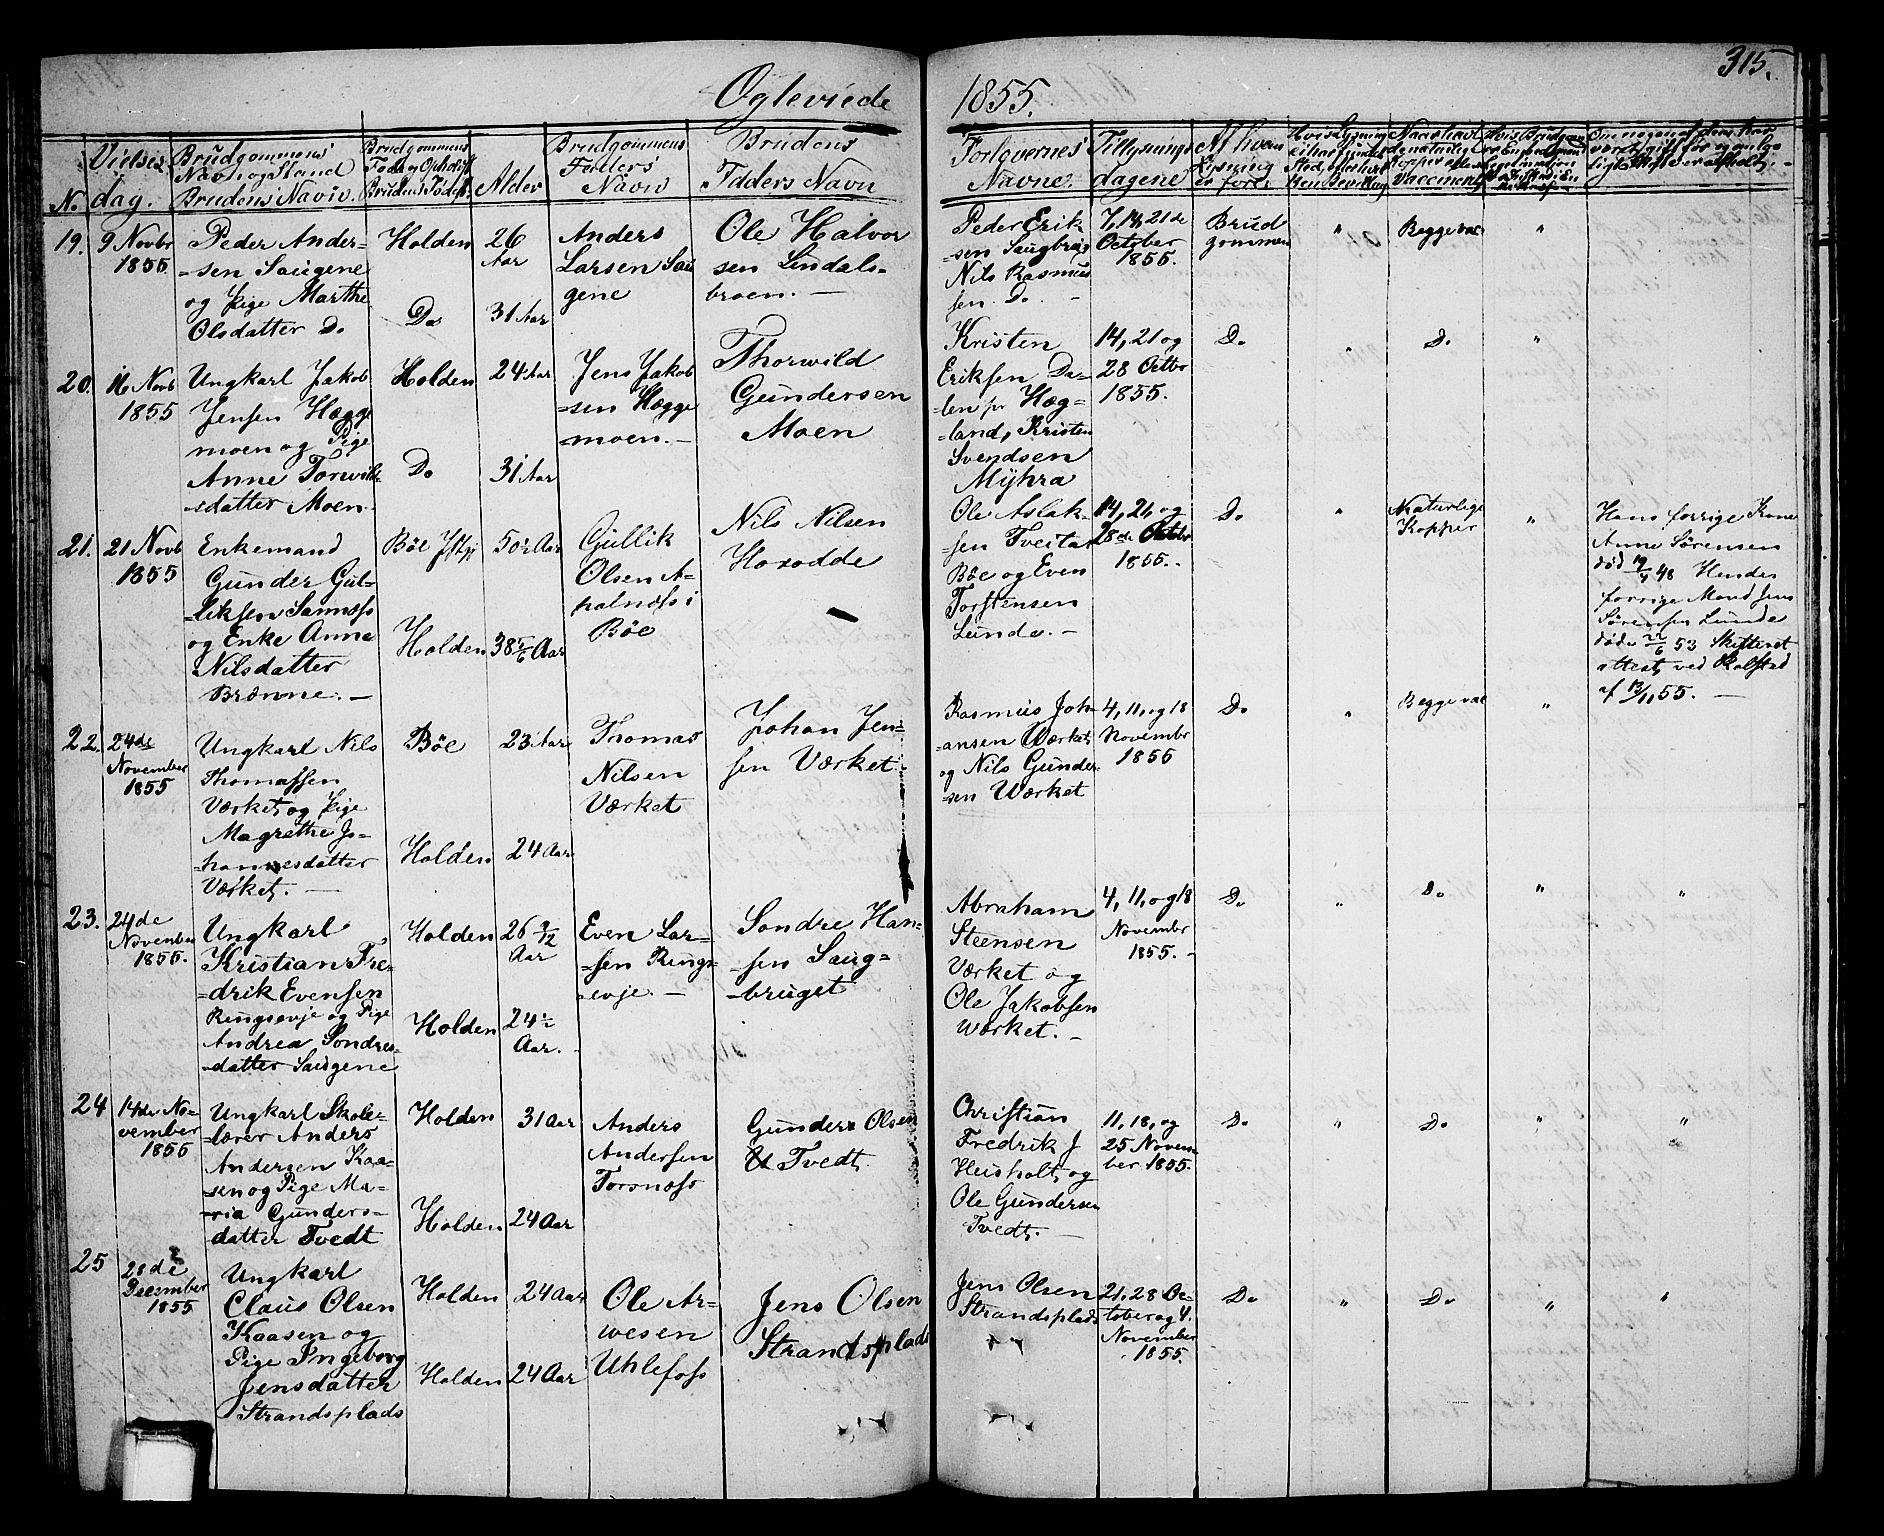 315.
Ogteviede 1855.
No.
Vielses dag.
Brudgommens Navn og Stand
Brudens Navn.
Brudgommens Føde og Opholdst
Brudens Fødest
Alder
Brudgommens Faders Navn
Brudens Faders Navn
Forlovernes Navne.
Tillysnings dagene
Af hvem Lysning er forr.
19.
9 Novbr
1855.
Peder Ander-
-sen Saugene
og Pige Marthe
Olsdatter Do
Holden
Do
26
Aar
31 Aar
Anders
Larsen Sau
gene
Ole Halvor
sen Lindals-
broen. —
Peder Erik
sen Saugbrug
Nils Rasmus
sen Do. -
7, 14, 21de
October
1855.
Brud
gommen
"
Begge vac
"
20.
16 Novb
1855
Ungkarl Jakob
Jensen Hægge
moen og Pige
Anne Torwils-
-sdatter Moen.
Holden
Do
24 Aar
31 Aar
Jens Jakob
-sen Hægge
-moen. -
Thorwild
Gundersen
Moen
Kristen
Eriksen Da-
-len pr Hæg-
-land, Kristen
Svendsen
Myhra
14, 21 og
28 Octbr
1855.
Do
"
Do
"
21.
21 Novb
1855
Enkemand
Gunder Gul-
-liksen Sannæss
og Enke Anne
Nilsdatter
Brænne. —
Bøe
Holden
50 Aar
38 5/6 Aar
Gullik
Olsen A-
-halnæss i
Bøe
Nils Nilsen
Horodde
Ole Aslak-
-sen Tveitar
Bøe og Even
Torstensen
Lunde. -
14, 21, og
28de Octobr
1855. -
Do
"
Naturlige
Kopper
"
Hans forrige Kone
Anne Sørensen
død 48 Hendes
forrige Mand Jens
Sørensen Lunde
døde 53 Skifteret
attest ved Kolstad
af 13/11 55. —
22.
24de
November
1855
Ungkarl Nils
Thomassen
Værket, og Pige
Magrethe Jo-
-hannesdatter
Værket. —
Bøe
Holden
23 Aar
24 Aar
Thomas
Nilsen
Værket
Johan Jen-
sen Værket
Rasmus Joh-
-ansen Værket
og Nils Gunder-
-sen Wærket
4, 11, og 18
November
1855
Do
"
Begge vac
"
23.
24de
November
1855.
Ungkarl
Kristian Fre-
-drik Evensen
Ringsevje og Pige
Andrea Sondres-
-datter Saugene
Holden
Holden
26 9/12
Aar
24 1/2
Aar.
Even Lar-
-sen Rings-
-evje. —
Sondre Han-
-sen Saug-
-bruget
Abraham
Steensen
Værket og
Ole Jakobsen
Wærket. -
4, 11, og 18
November
1855. -
Do
"
Do
"
"
24
14de No-
vember
1855
Ungkarl Skole-
-lærer Anders
Andersen Kaa-
-sen og Pige Ma-
-ria Gunders-
datter Tvedt
Holden
Holden
31 Aar
24 Aar
Anders
Andersen
Torsnæss
Gunder Olsen
Tvedt.
Christian
Fredrik J
Heisholt, og
Ole Gundersen
Tvedt. -
11, 18, og
25 Novem
ber 1855.
Do
"
Do
"
"
25
28de
December
1855
Ungkarl
Claus Olsen
Kaasen og
Pige Ingeborg
Jensdatter
Strandsplads
Holden
Holden
24 Aar
24 Aar
Ole Ar-
wesen
Uhlefoss
Jens Olsen
Strandsplads
Jens Olsen
Strandsplads
21, 28 Oc-
tober og 4.
November
1855.
Do
"
Do
"
"